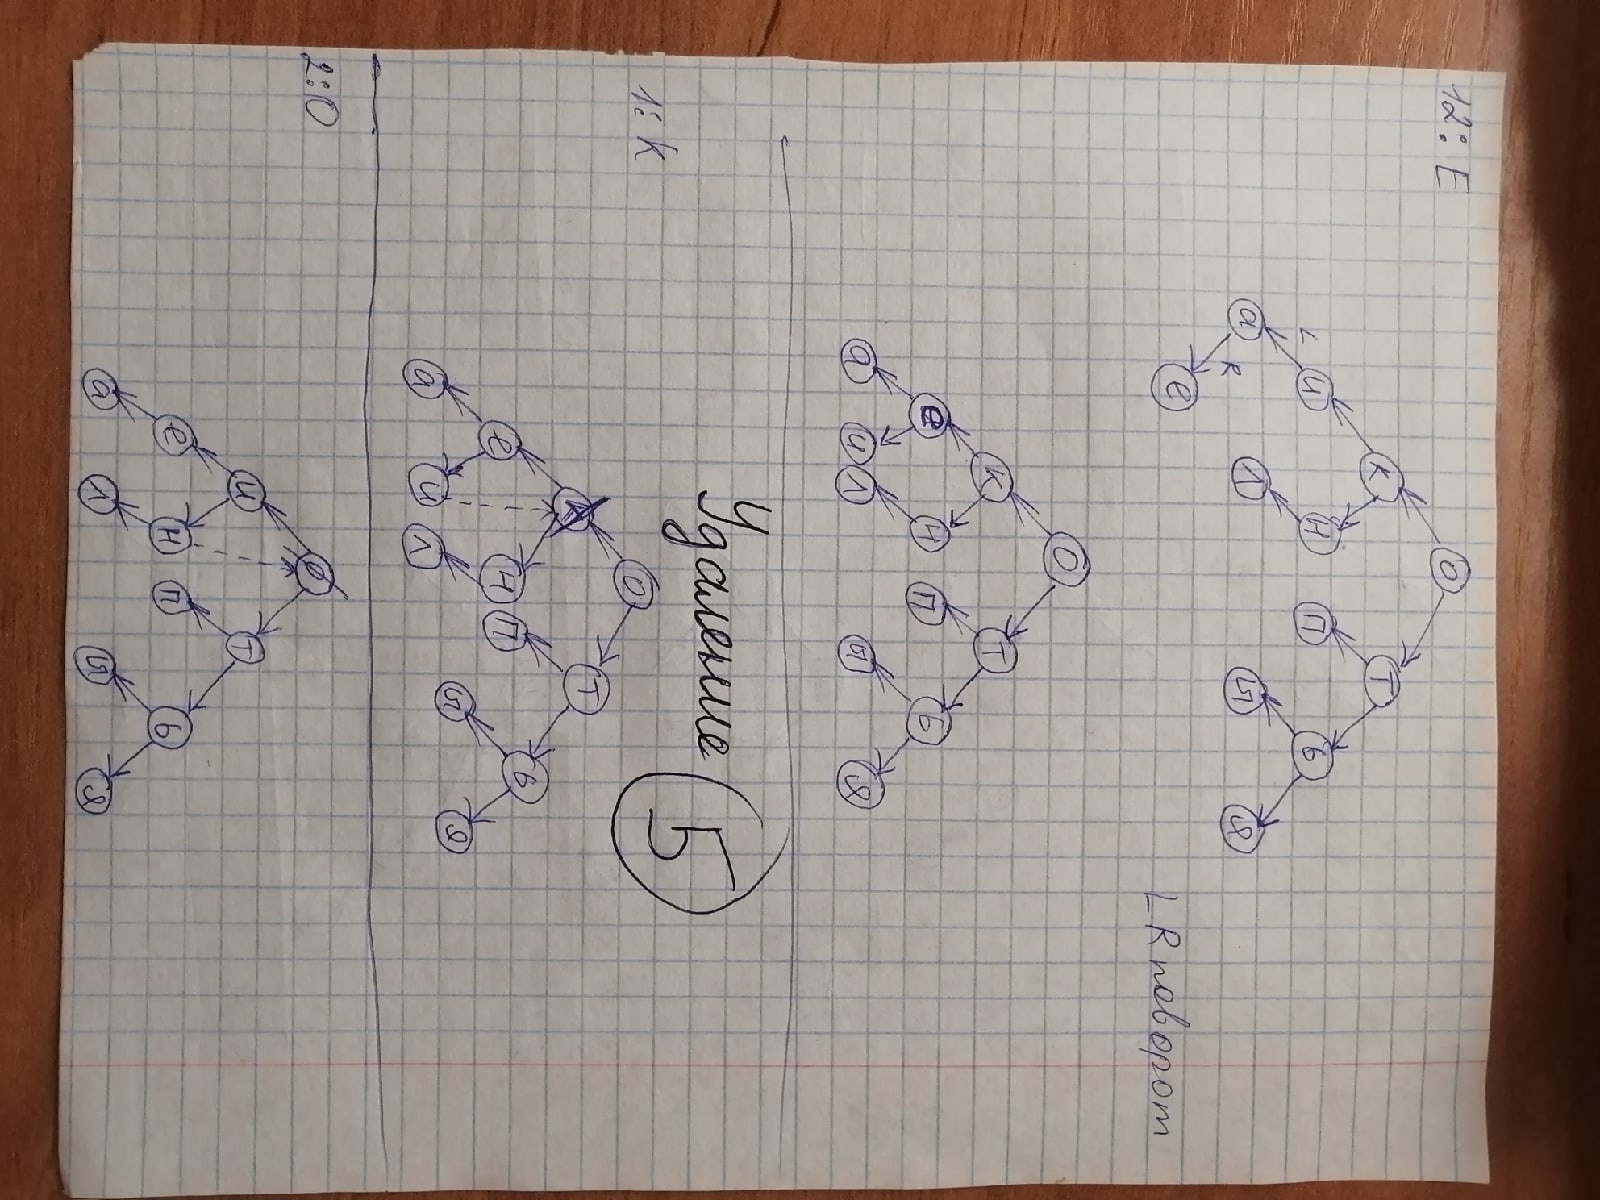 12: Е
О
К Т
и Н П Ь
L
а Л Ы Я
R
е
LR поворот
О
К Т
е Н П Ь
а и Л Ы Я
Удаление 5
1: К
О
К Т
е Н П Ь
а и Л Ы Я
2: О
О
и Т
е Н П Ь
а Л Ы Я